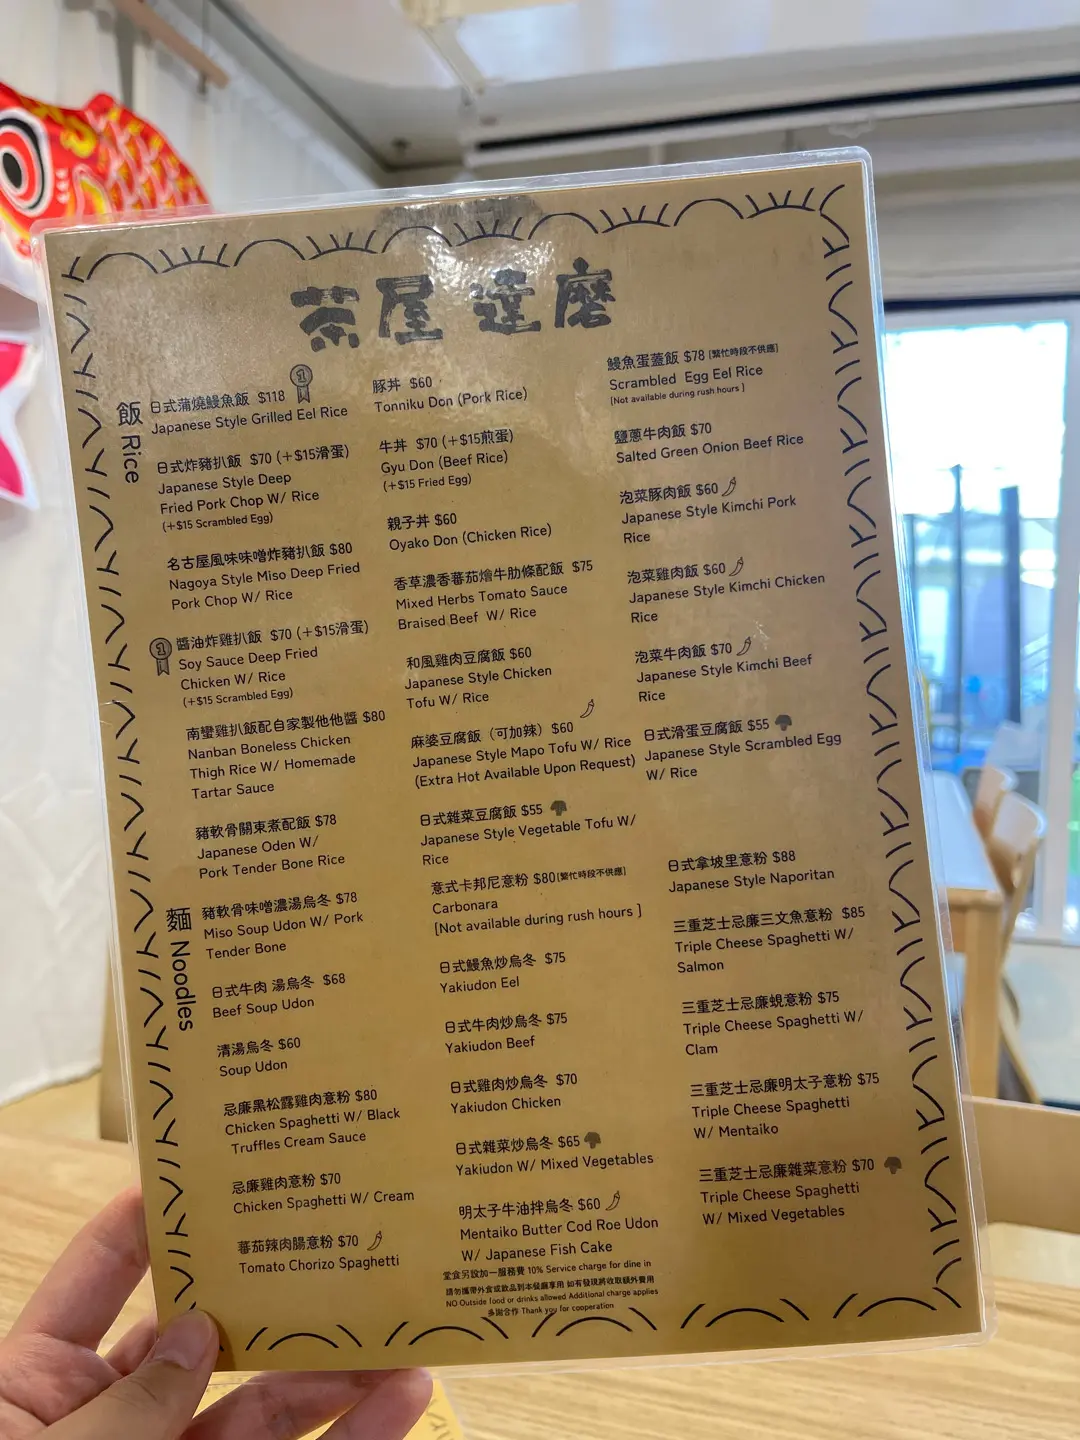 茶屋 達磨
飯 Rice
日式蒲燒鰻魚飯 $118
Japanese Style Grilled Eel Rice
日式炸豬扒飯 $70 (+$15滑蛋)
Japanese Style Deep
Fried Pork Chop W/ Rice
(+$15 Scrambled Egg)
名古屋風味味噌炸豬扒飯 $80
Nagoya Style Miso Deep Fried
Pork Chop W/ Rice
醬油炸雞扒飯 $70 (+$15滑蛋)
Soy Sauce Deep Fried
Chicken W/ Rice
(+$15 Scrambled Egg)
南蠻雞扒飯配自家製他他醬 $80
Nanban Boneless Chicken
Thigh Rice W/ Homemade
Tartar Sauce
豬軟骨關東煮配飯 $78
Japanese Oden W/
Pork Tender Bone Rice
豚丼 $60
Tonniku Don (Pork Rice)
牛丼 $70 (+$15煎蛋)
Gyu Don (Beef Rice)
(+$15 Fried Egg)
親子丼 $60
Oyako Don (Chicken Rice)
香草濃香蕃茄燴牛肋條配飯 $75
Mixed Herbs Tomato Sauce
Braised Beef W/ Rice
和風雞肉豆腐飯 $60
Japanese Style Chicken
Tofu W/ Rice
麻婆豆腐飯（可加辣）$60
Japanese Style Mapo Tofu W/ Rice
(Extra Hot Available Upon Request)
日式雜菜豆腐飯 $55
Japanese Style Vegetable Tofu W/
Rice
鰻魚蛋蓋飯 $78 [繁忙時段不供應]
Scrambled Egg Eel Rice
[Not available during rush hours ]
鹽蔥牛肉飯 $70
Salted Green Onion Beef Rice
泡菜豚肉飯 $60
Japanese Style Kimchi Pork
Rice
泡菜雞肉飯 $60
Japanese Style Kimchi Chicken
Rice
泡菜牛肉飯 $70
Japanese Style Kimchi Beef
Rice
日式滑蛋豆腐飯 $55
Japanese Style Scrambled Egg
W/ Rice
麵 Noodles
豬軟骨味噌濃湯烏冬 $78
Miso Soup Udon W/ Pork
Tender Bone
日式牛肉 湯烏冬 $68
Beef Soup Udon
清湯烏冬 $60
Soup Udon
忌廉黑松露雞肉意粉 $80
Chicken Spaghetti W/ Black
Truffles Cream Sauce
忌廉雞肉意粉 $70
Chicken Spaghetti W/ Cream
蕃茄辣肉腸意粉 $70
Tomato Chorizo Spaghetti
意式卡邦尼意粉 $80[繁忙時段不供應]
Carbonara
[Not available during rush hours ]
日式鰻魚炒烏冬 $75
Yakiudon Eel
日式牛肉炒烏冬 $75
Yakiudon Beef
日式雞肉炒烏冬 $70
Yakiudon Chicken
日式雜菜炒烏冬 $65
Yakiudon W/ Mixed Vegetables
明太子牛油拌烏冬 $60
Mentaiko Butter Cod Roe Udon
W/ Japanese Fish Cake
日式拿坡里意粉 $88
Japanese Style Naporitan
三重芝士忌廉三文魚意粉 $85
Triple Cheese Spaghetti W/
Salmon
三重芝士忌廉蜆意粉 $75
Triple Cheese Spaghetti W/
Clam
三重芝士忌廉明太子意粉 $75
Triple Cheese Spaghetti
W/ Mentaiko
三重芝士忌廉雜菜意粉 $70
Triple Cheese Spaghetti
W/ Mixed Vegetables
堂食另設加一服務費 10% Service charge for dine in
請勿攜帶外食或飲品到本餐廳享用 如有發現將收取額外費用
NO Outside food or drinks allowed Additional charge applies
多謝合作 Thank you for cooperation